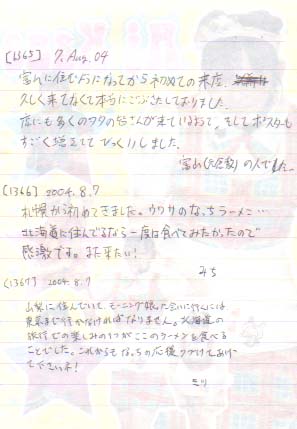 [1365] 7. Aug. 04
富山に住むようになってから初めての来店.
久しく来てなくて本当にごぶさたしておりました.
店にも多くのヲタの皆さんが来ているようで、そしてポスターも
すごく増えてて びっくりしました.
富山(元倉敷)の人でした.
[1366] 2004. 8. 7
札幌から初めてきました。ウワサのなっちラーメン…
北海道に住んでるなら一度は食べてみたかったので
感激です。また来たい!
みち
[1367] 2004. 8. 7
山梨に住んでいて、モーニング娘。に会いに行くには
東京まで行かなければなりません。北海道の
旅行での楽しみの1つがこのラーメンを食べる
ことでした。これからもなっちの応援つづけてあげ
て下さいネ!